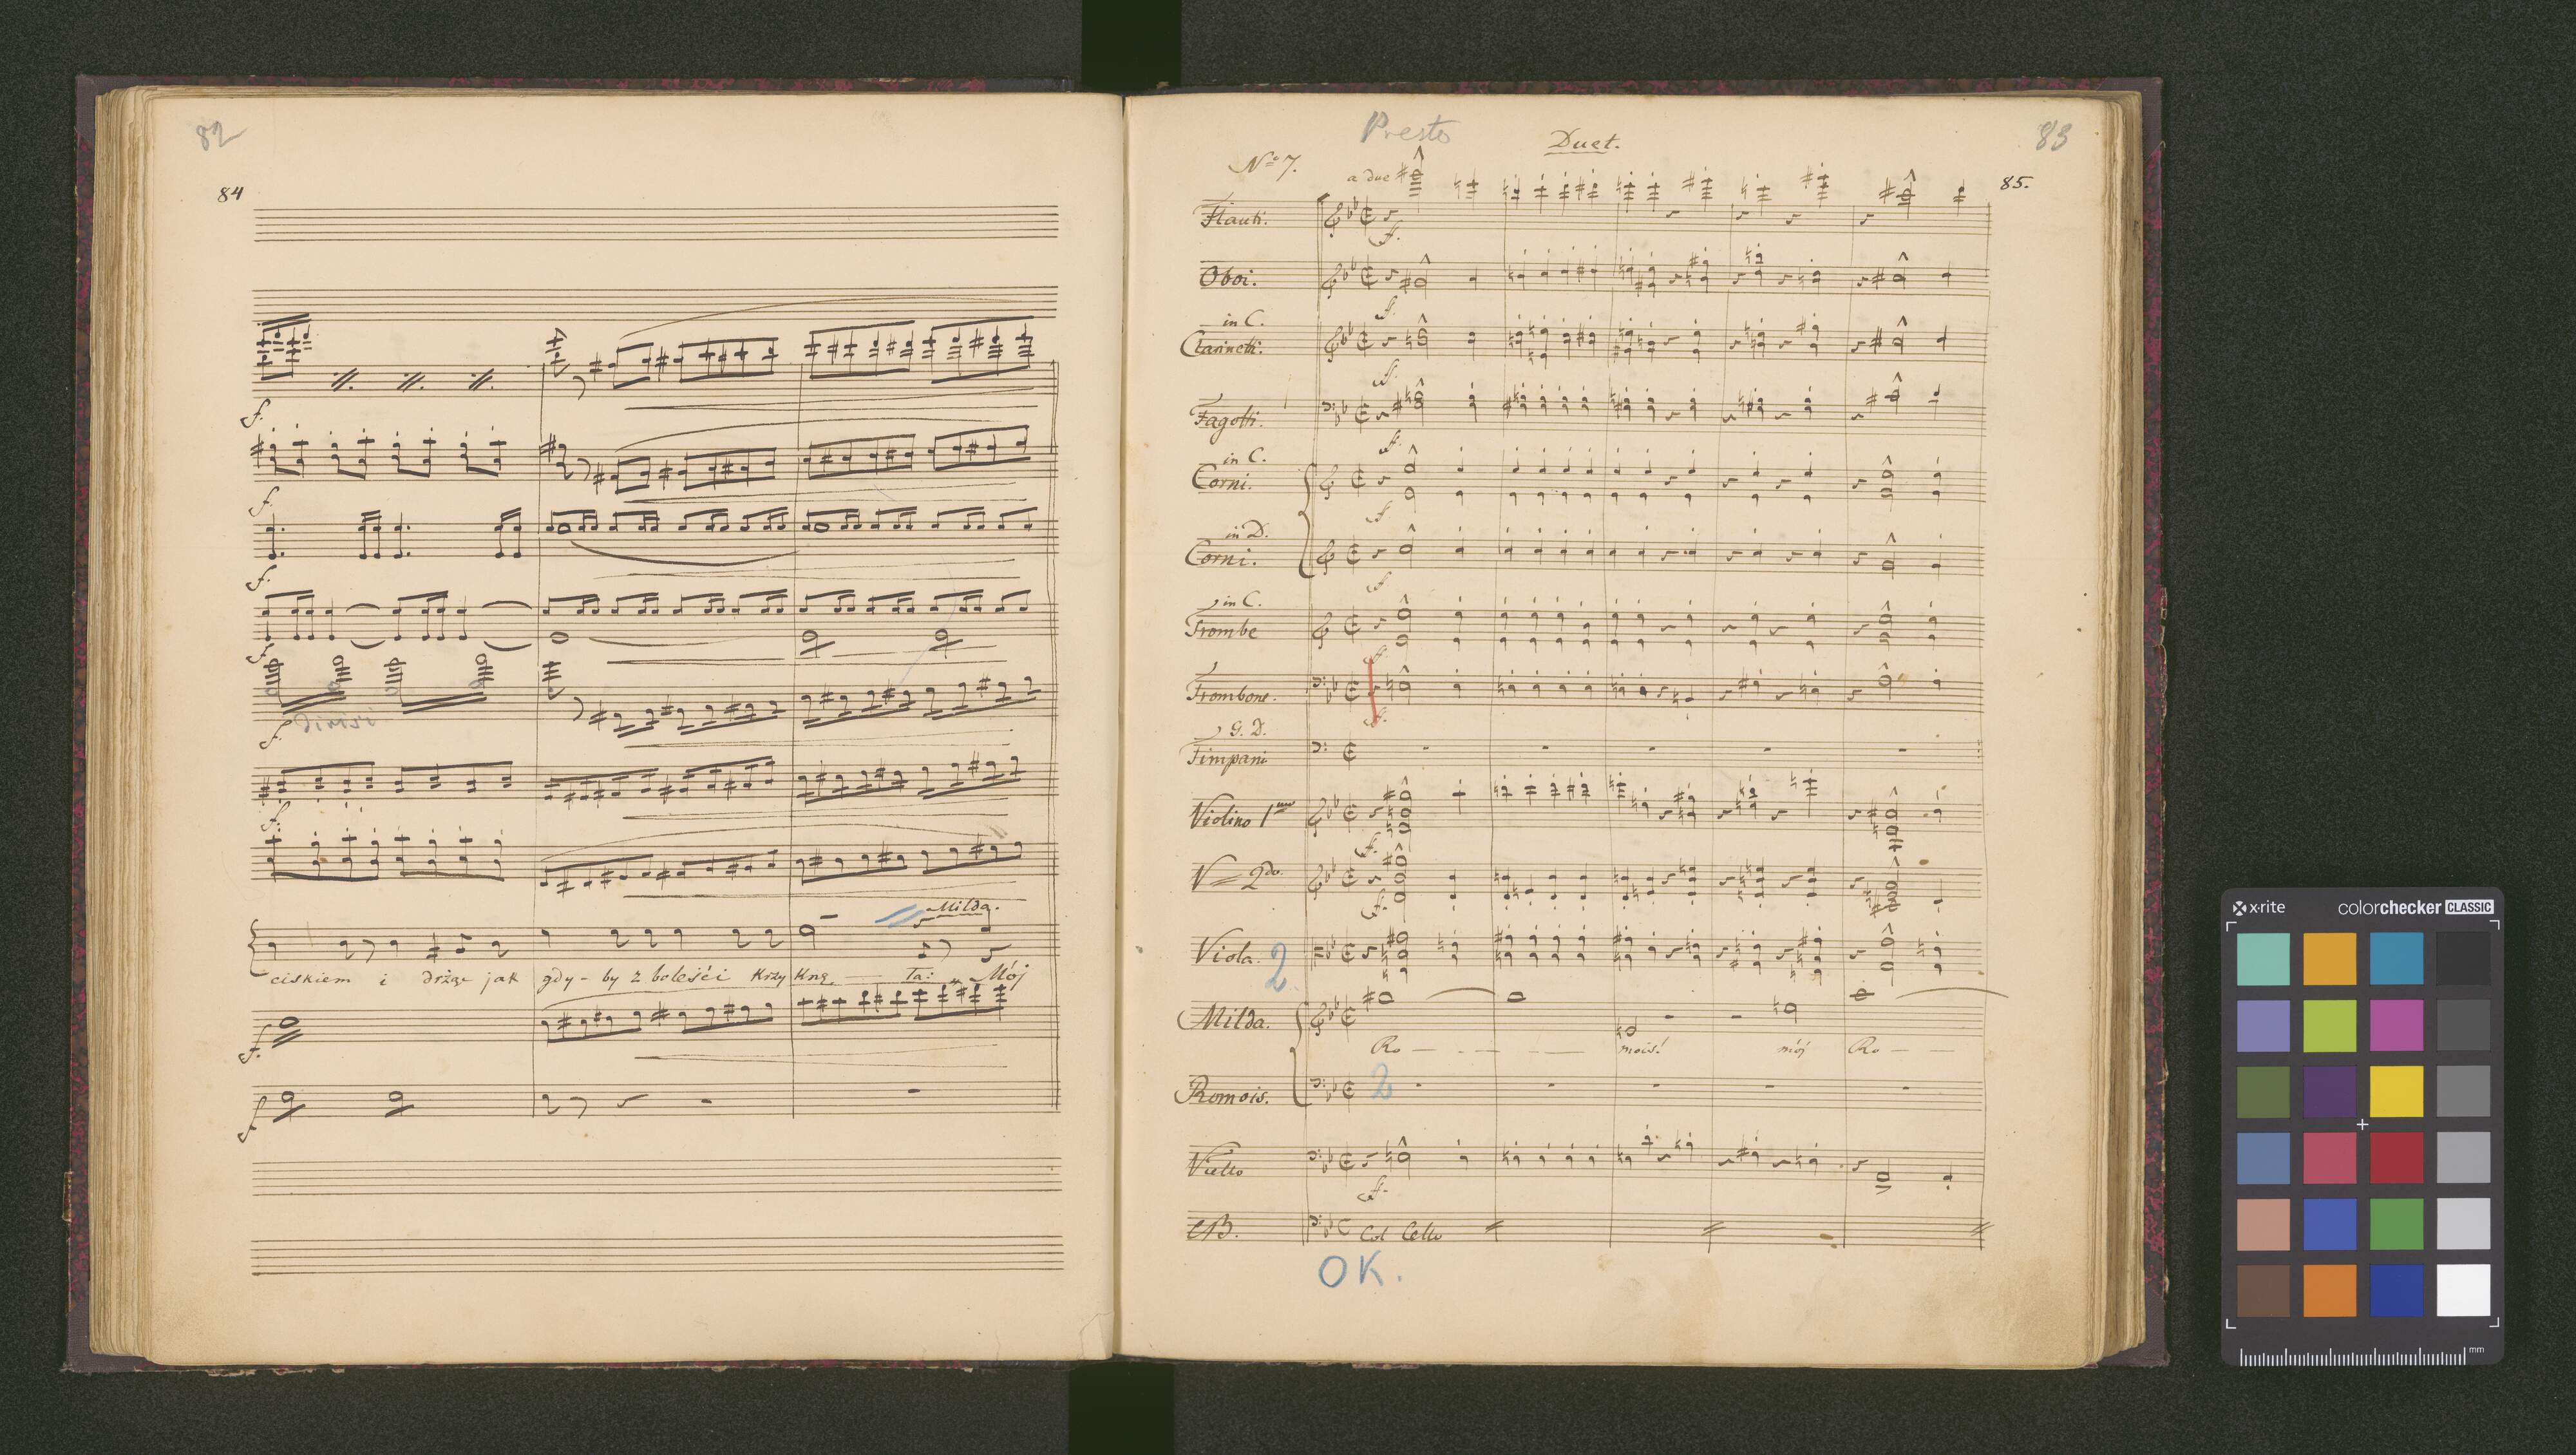 82
84
f.
f.
f.
f.
f. Divisi
f.
Milda.
ciskiem i drżąc jak gdy-by z boleści Krzy Kną ta: „Mój
f.
f
Presto
Duet.
83
No 7.
85.
a due
Flauti.
f.
Oboi.
f.
in C.
Clarinetti.
f.
Fagotti.
f.
in C.
Corni.
f.
in D.
Corni.
f.
in C.
Trombe
f.
Trombone.
f.
G. D.
Timpani
Violino 1mo
f.
V 2do.
f.
Viola. 2
Milda.
Ro - - - mois! mój Ro - -
Romois. 2
Vcello
f.
CB. Col Cello
OK.
x-rite colorchecker CLASSIC
mm